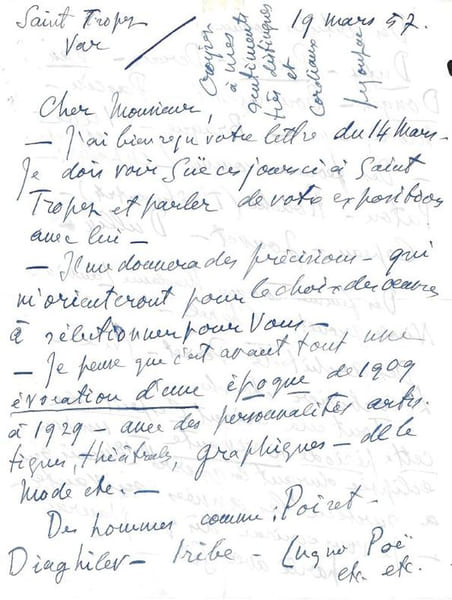 Saint Tropez
Var
19 mars 57.
Croyez
à mes
sentiments
distingués
et
cordiaux
Cher Monsieur,
— J'ai bien reçu votre lettre du 14 Mars —
Je dois voir Süe ces jours ci à Saint
Tropez et parler de votre exposition
avec lui —
— Il me donnera des précisions — qui
m'orienteront pour le choix des œuvres
à sélectionner pour Vous —
— Je pense que c'est avant tout une
évocation d'une époque de 1909
à 1929 — avec des personnalités artis.
tiques, théâtrales, graphiques — de la
Mode etc. —
Des hommes comme : Poiret —
Diaghilev — Iribe — Lugné Poë
etc. etc.